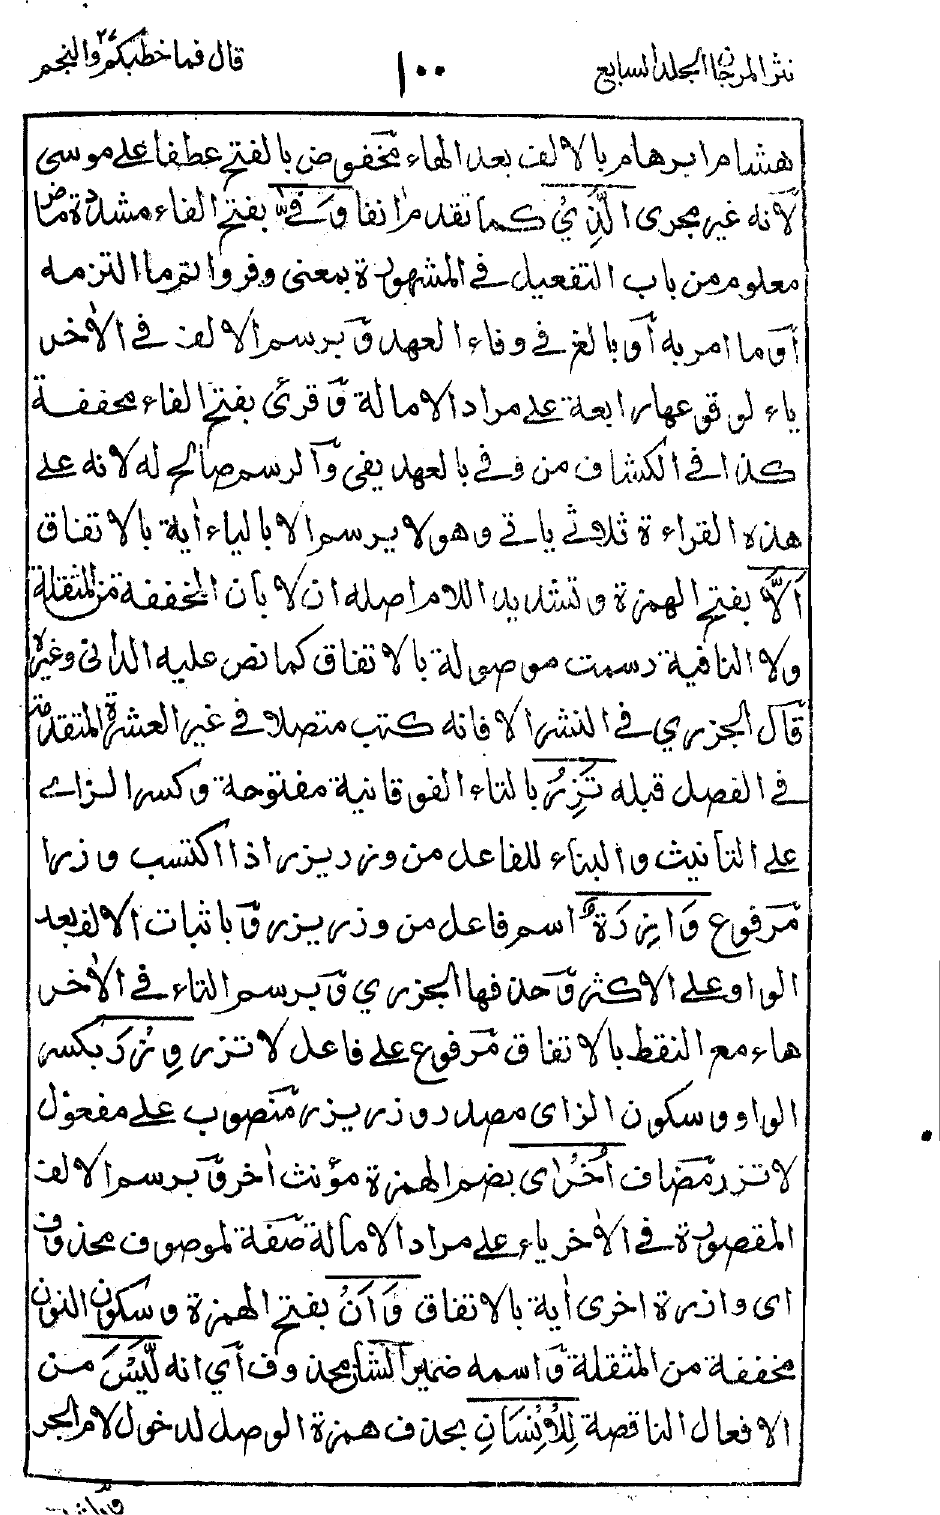 نثر المرجان المجلد السابع ١٠٠ قال فما خطبكم ٢٧ والنجم
هشام ابرهام بالالف بعد الهاء مخفوض بالفتح عطفا على موسى
لانه غير مجرى الَّذِيْ كما تقدم مرانفا وَفّٰى بفتح الفاء مشددة ماض
معلوم من باب التفعيل في المشهورة بمعنى وفر واتم ما التزمه
او ما امر به او بالغ في وفاء العهد و برسم الالف في الاٰخر
ياء لوقوعها رابعة على مراد الامالة و قرئ بفتح الفاء مخففة
كذا في الكشاف من وفى بالعهد يفى والرسم صالح له لانه على
هذه القراءة ثلاثى يائى وهو لا يرسم الا بالياء اٰية بالاتفاق
اَلَّا بفتح الهمزة و تشديد اللام اصله ان لا بان المخففة من المثقلة
ولا النافية رسمت موصولة بالاتفاق كما نص عليه الدانى وغيره
قال الجزري في النشر الا فانه كتب متصلا في غير العشرة المتقدمة
في الفصل قبله تَزِرُ بالتاء الفوقانية مفتوحة وكسر الزاے
على التانيث والبناء للفاعل من وزر يزر اذا اكتسب وزرا
مرفوع وَازِرَةٌ اسم فاعل من وزر يزر و باثبات الالف بعد
الواو على الاكثر و حذفها الجزري و برسم التاء في الاٰخر
هاء مع النقط بالاتفاق مرفوع على فاعل لا تزر وِزْرَ بكسر
الواو و سكون الزاى مصدر وزر يزر منصوب على مفعول
لا تزر مضاف اُخْرٰى بضم الهمزة مؤنث اٰخر و برسم الالف
المقصورة في الاٰخر ياء على مراد الامالة صفة لموصوف محذوف
اى وازرة اخرى اٰية بالاتفاق وَاَنْ بفتح الهمزة و سكون النون
مخففة من المثقلة و اسمه ضمير الشان محذوف اي انه لَّيْسَ من
الافعال الناقصة لِلْاِنْسَانِ بحذف همزة الوصل لدخول لام الجر